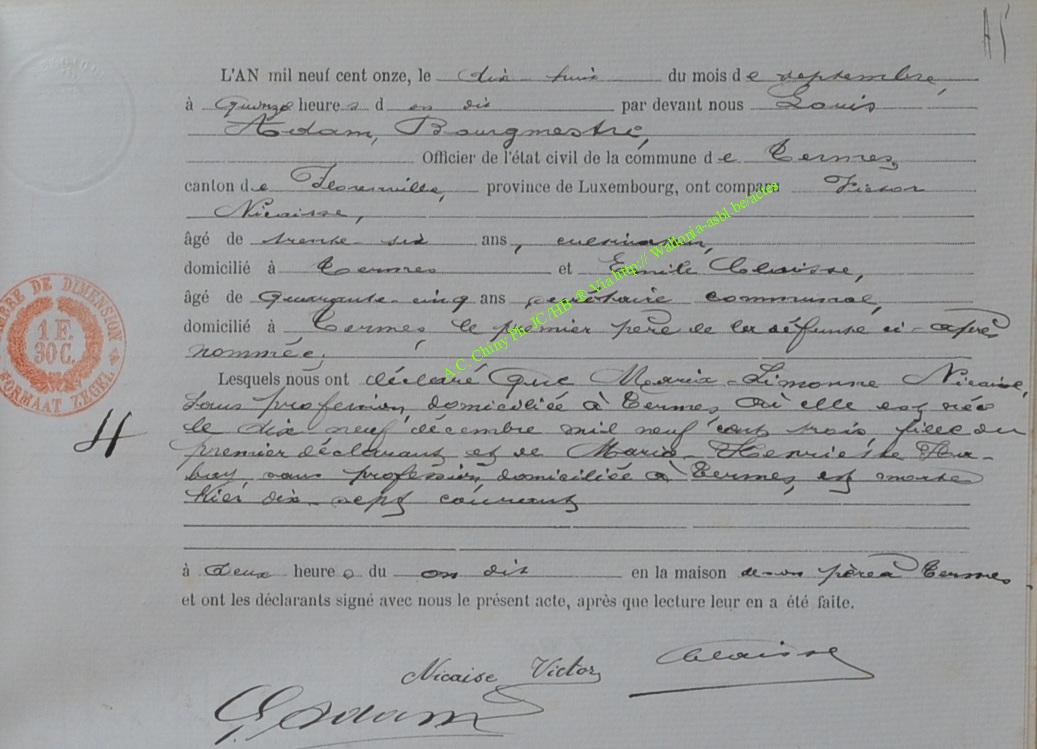 A5
L'AN mil neuf cent onze, le dix huit du mois de septembre,
à Quinze heures d on dit par devant nous Louis
Adam, Bourgmestre,
Officier de l'état civil de la commune de Termes,
canton de Florenville, province de Luxembourg, ont comparu Victor
Nicaisse,
âgé de trente-six ans, cultivateur,
domicilié à Termes et Emile Claisse,
âgé de Quarante-cinq ans secrétaire communal,
domicilié à Termes, le premier père de la défunte ci-après
nommée;
Lesquels nous ont déclaré Que Maria-Simonne Nicaise,
sans profession, domiciliée à Termes, où elle est née
le dix neuf décembre mil neuf cent trois, fille du
premier déclarant et de Marie-Henriette Hu-
bay, sans profession, domiciliée à Termes, est morte
hier dix-sept courant
à deux heures du on dit en la maison de son père à Termes
et ont les déclarants signé avec nous le présent acte, après que lecture leur en a été faite.
Nicaise Victor Claisse
L Adam
TIMBRE DE DIMENSION
1 F.
30 C.
FORMAAT ZEGEL
4
A.C. Chiny Ph. JC/HB ® Via http:// Wallonia-asbl.be/actes